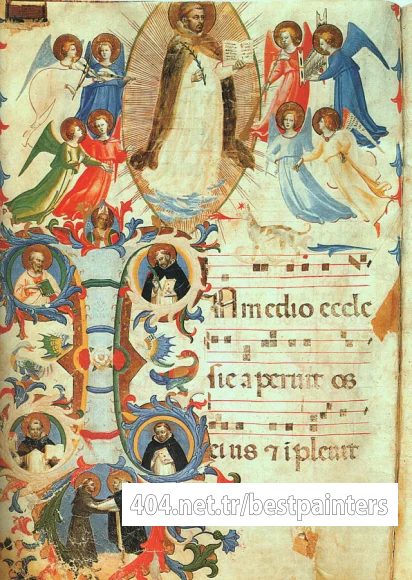 N medio eccle
sie aperuit os
eius ⁊ ipleuit
404.net.tr/bestpainters